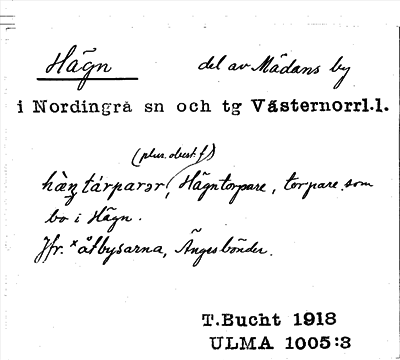 Hägn del av Mädans by
i Nordingrå sn och tg Västernorrl.l.
(plur. obest. f)
hæ̀ꞑtárparər, Hägntorpare, torpare som
bo i Hägn.
Jfr. × åtbysarna, Ängesbönder.
T.Bucht 1918
ULMA 1005:3